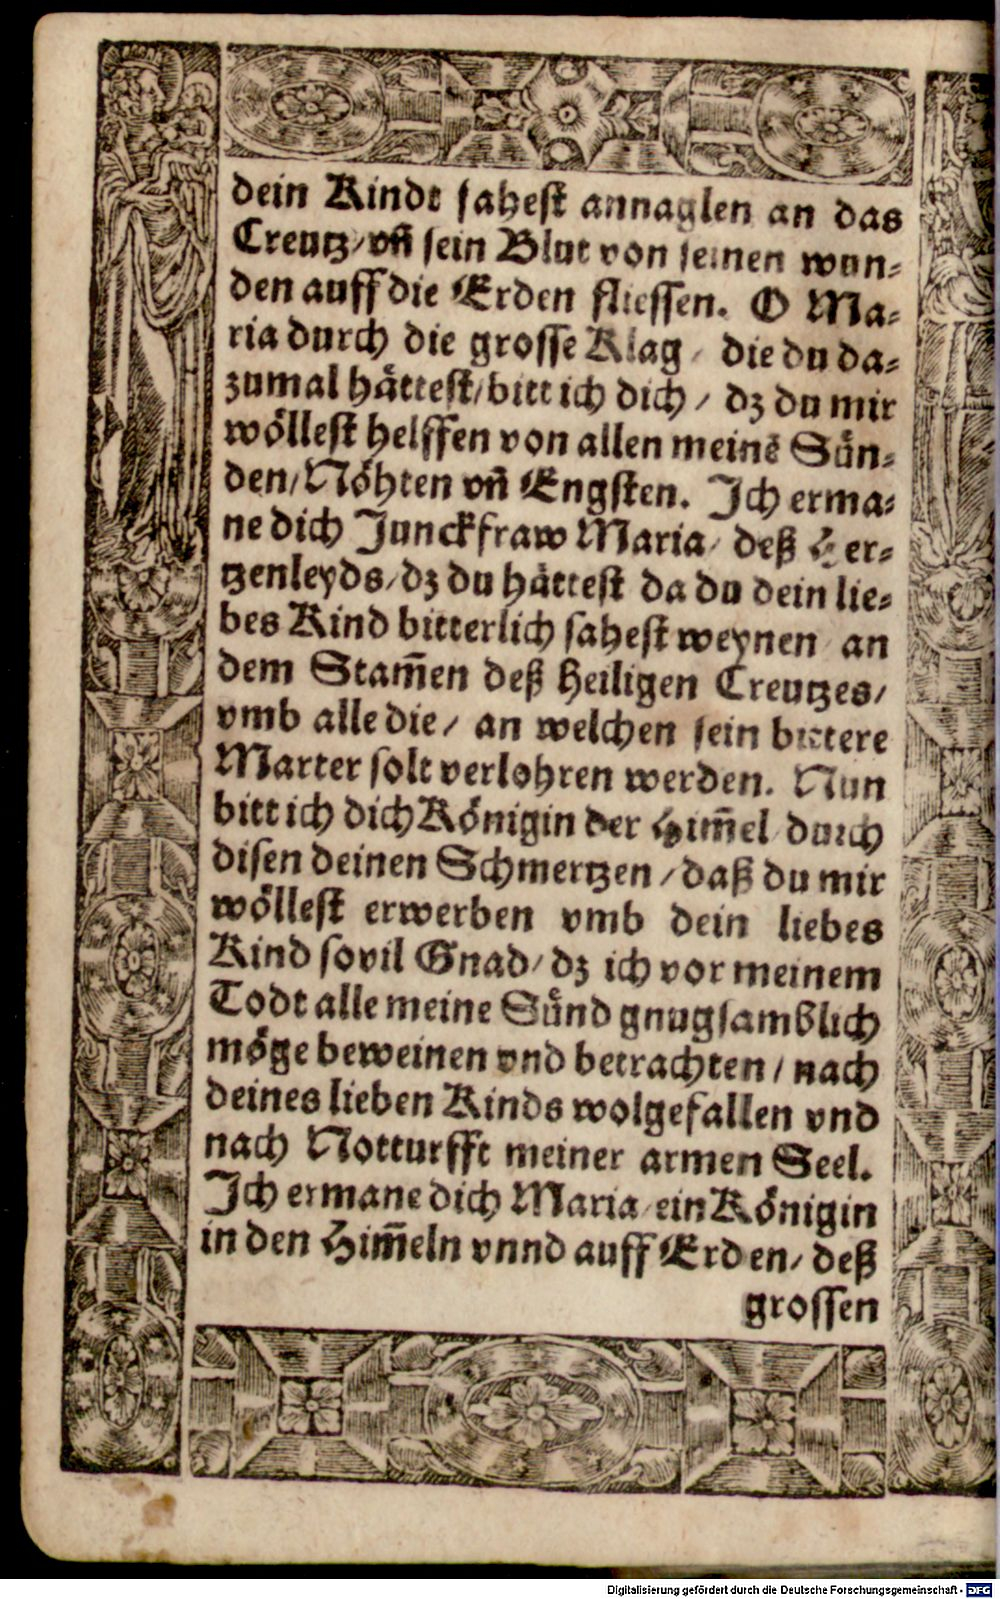 dein Kindt sahest annaglen an das
Creutz / vñ sein Blut von seinen wun⸗
den auff die Erden fliessen. O Ma⸗
ria durch die grosse Klag / die du da⸗
zumal hättest / bitt ich dich / dz du mir
wöllest helffen von allen meinē Sün⸗
den / Nöhten vñ Engsten. Ich erma⸗
ne dich Junckfraw Maria / deß Her⸗
tzenleyds / dz du hättest da du dein lie⸗
bes Kind bitterlich sahest weynen an
dem Stam̄en deß Heiligen Creutzes /
vmb alle die / an welchen sein bittere
Marter solt verlohren werden. Nun
bitt ich dich Königin der Him̄el durch
disen deinen Schmertzen / daß du mir
wöllest erwerben vmb dein liebes
Kind sovil Gnad / dz ich vor meinem
Todt alle meine Sünd gnugsamblich
möge beweinen vnd betrachten / nach
deines lieben Kinds wolgefallen vnd
nach Notturfft meiner armen Seel.
Ich ermane dich Maria / ein Königin
in den Him̄eln vnnd auff Erden / deß
grossen
Digitalisierung gefördert durch die Deutsche Forschungsgemeinschaft - DFG